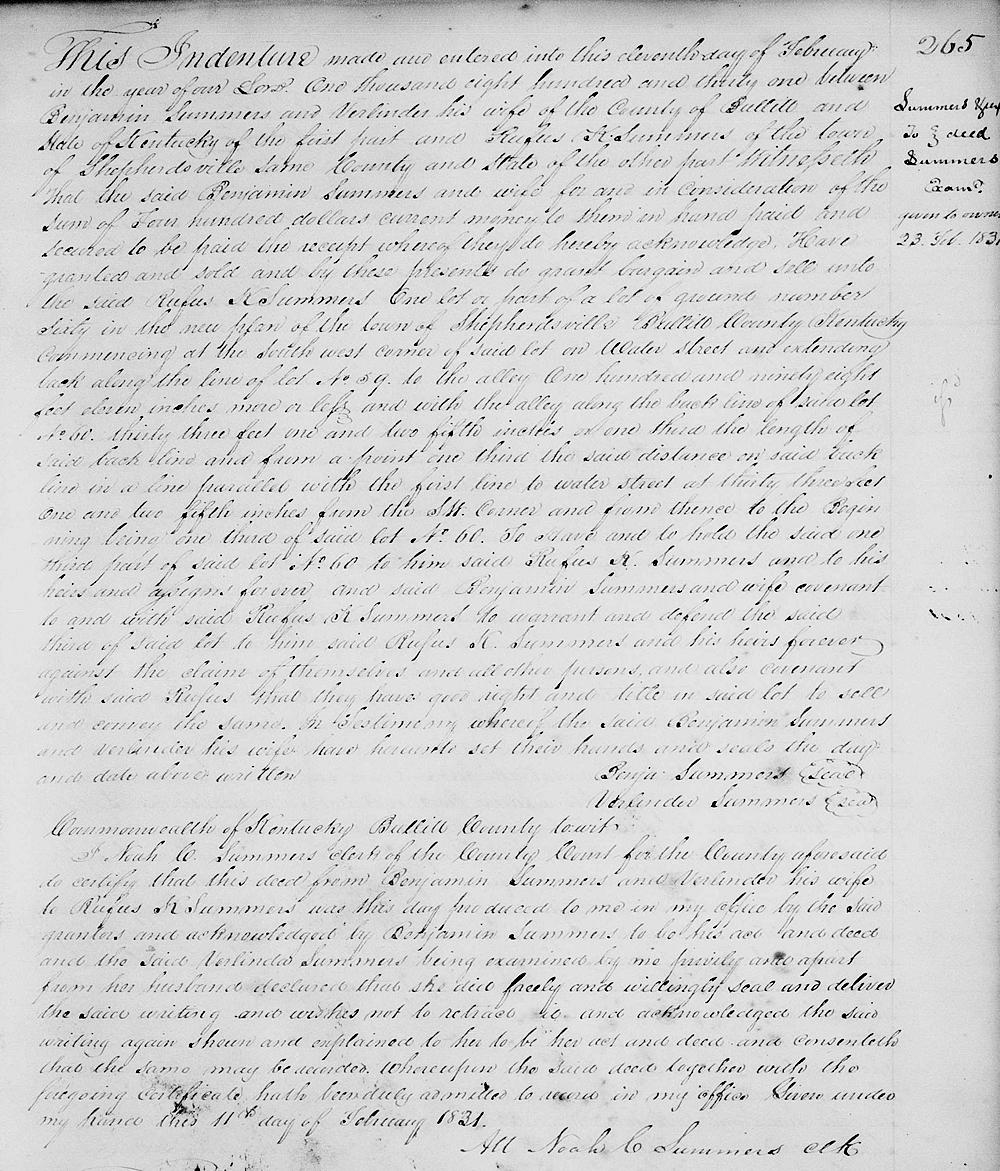 265
Summers & ux
To } deed
Summers
Examd
given to owner
23. Feb. 1831
This Indenture made and entered into this eleventh day of February
in the year of our Lord. One thousand eight hundred and thirty one between
Benjamin Summers and Verlinder his wife of the County of Bullitt and
State of Kentucky of the first part and Rufus K. Summers of the town
of Shepherdsville same County and State of the other part Witnesseth
that the said Benjamin Summers and wife for and in consideration of the
sum of Four hundred dollars current money to them in hand paid and
secured to be paid the receipt whereof they do hereby acknowledge, Have
granted and sold and by these presents do grant bargain and sell unto
the said Rufus K Summers One lot or part of a lot of ground number
Sixty in the new plan of the town of Shepherdsville Bullitt County Kentucky
Commencing at the South west corner of said lot on Water street and extending
back along the line of lot No 59. to the alley One hundred and ninety eight
feet eleven inches more or less and with the alley along the back line of said lot
No 60. thirty three feet one and two fifth inches or one third the length of
said back line and from a point one third the said distance on said back
line in a line parallel with the first line to water street at thirty three feet
one and two fifth inches from the S.W. Corner and from thence to the Begin
ning being one third of said lot No. 60. To Have and to hold the said one
third part of said lot No 60 to him said Rufus K. Summers and to his
heirs and assigns forever and said Benjamin Summers and wife covenant
to and with said Rufus K Summers to warrant and defend the said
third of said lot to him said Rufus K. Summers and his heirs forever
against the claim of themselves and all other persons, and also covenant
with said Rufus that they have good right and title in said lot to sell
and convey the same. In Testimony whereof the said Benjamin Summers
and Verlinder his wife have hereunto set their hands and seals the day
and date above written
Benja. Summers (Seal)
Verlinder Summers (Seal)
Commonwealth of Kentucky Bullitt County towit
I Noah C. Summers Clerk of the County Court for the County aforesaid
do certify that this deed from Benjamin Summers and Verlinder his wife
to Rufus K Summers was this day produced to me in my office by the said
grantors and acknowledged by Benjamin Summers to be his act and deed
and the said Verlinda Summers being examined by me privily and apart
from her husband declared that she did freely and willingly seal and deliver
the said writing and wishes not to retract it and acknowledged the said
writing again shewn and explained to her to be her act and deed and consenteth
that the same may be recorded. Whereupon the said deed together with the
foregoing Certificate hath been duly admitted to record in my office Given under
my hand this 11th day of February 1831.
Att Noah C Summers clk